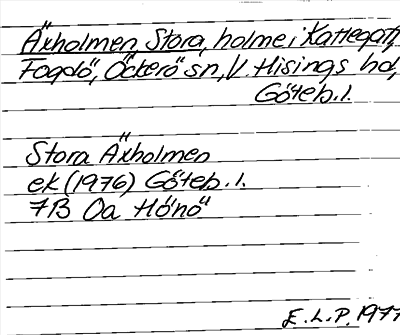 Äxholmen, Stora, holme i Kattegatt,
Fogdö, Öckerö sn, V. Hisings hd,
Göteb. l.
Stora Äxholmen
ek (1976) Göteb. l.
7B 0a Hönö
E.L.P. 1977